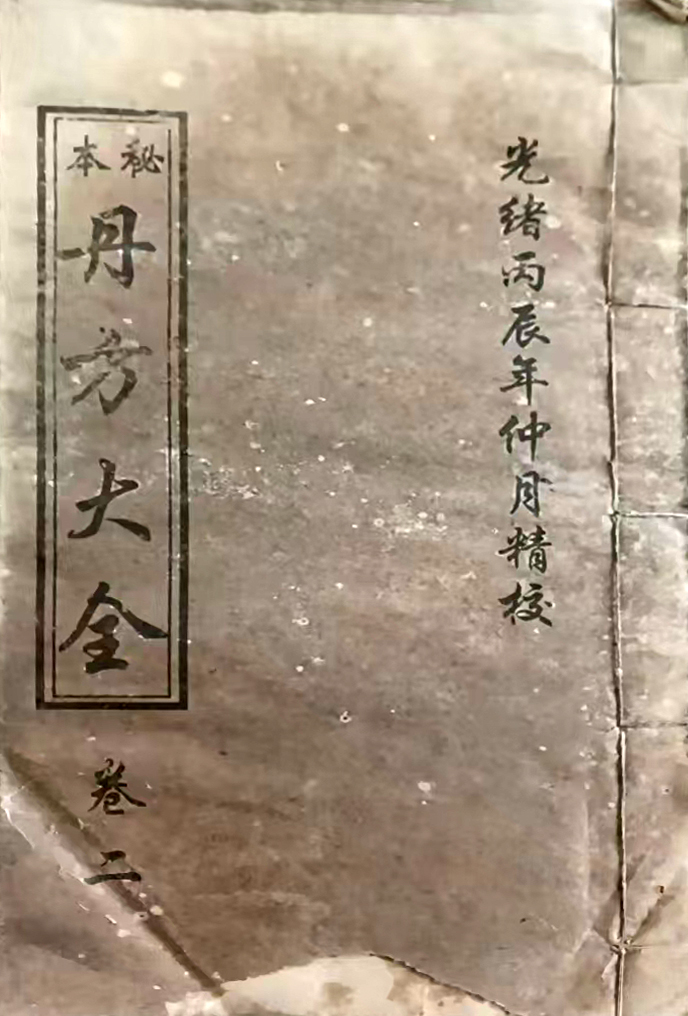 光绪丙辰年仲月精校
秘本
丹方大全
卷二